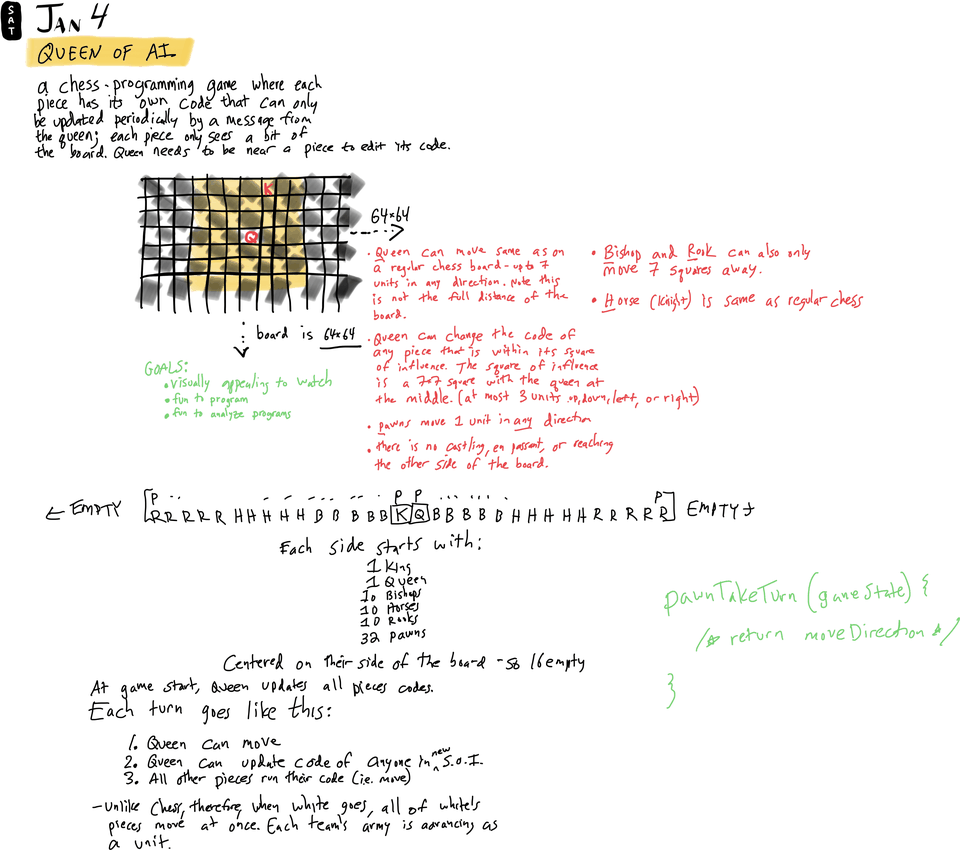 SAT
JAN 4
QUEEN OF AI
a chess-programming game where each
piece has its own code that can only
be updated periodically by a message from
the queen; each piece only sees a bit of
the board. Queen needs to be near a piece to edit its code.
K
Q
64x64
board is 64x64
GOALS:
• visually appealing to watch
• fun to program
• fun to analyze programs
• Queen can move same as on
a regular chess board - up to 7
units in any direction. Note this
is not the full distance of the
board.
• Queen can change the code of
any piece that is within its square
of influence. The square of influence
is a 7x7 square with the queen at
the middle. (at most 3 units up, down, left, or right)
• pawns move 1 unit in any direction
• there is no castling, en passant, or reaching
the other side of the board.
• Bishop and Rook can also only
move 7 squares away.
• Horse (Knight) is same as regular chess
P P P P
← EMPTY R R R R R H H H H H B B B B B K Q B B B B B H H H H H R R R R R EMPTY →
Each side starts with:
1 King
1 Queen
10 Bishops
10 Horses
10 Rooks
32 pawns
Centered on their side of the board - so 16 empty
At game start, Queen updates all pieces codes.
Each turn goes like this:
1. Queen can move
2. Queen can update code of anyone in new S.O.I.
3. All other pieces run their code (i.e. move)
- Unlike Chess, therefore, when white goes, all of white's
pieces move at once. Each team's army is advancing as
a unit.
pawnTakeTurn (gameState) {
/* return moveDirection */
}